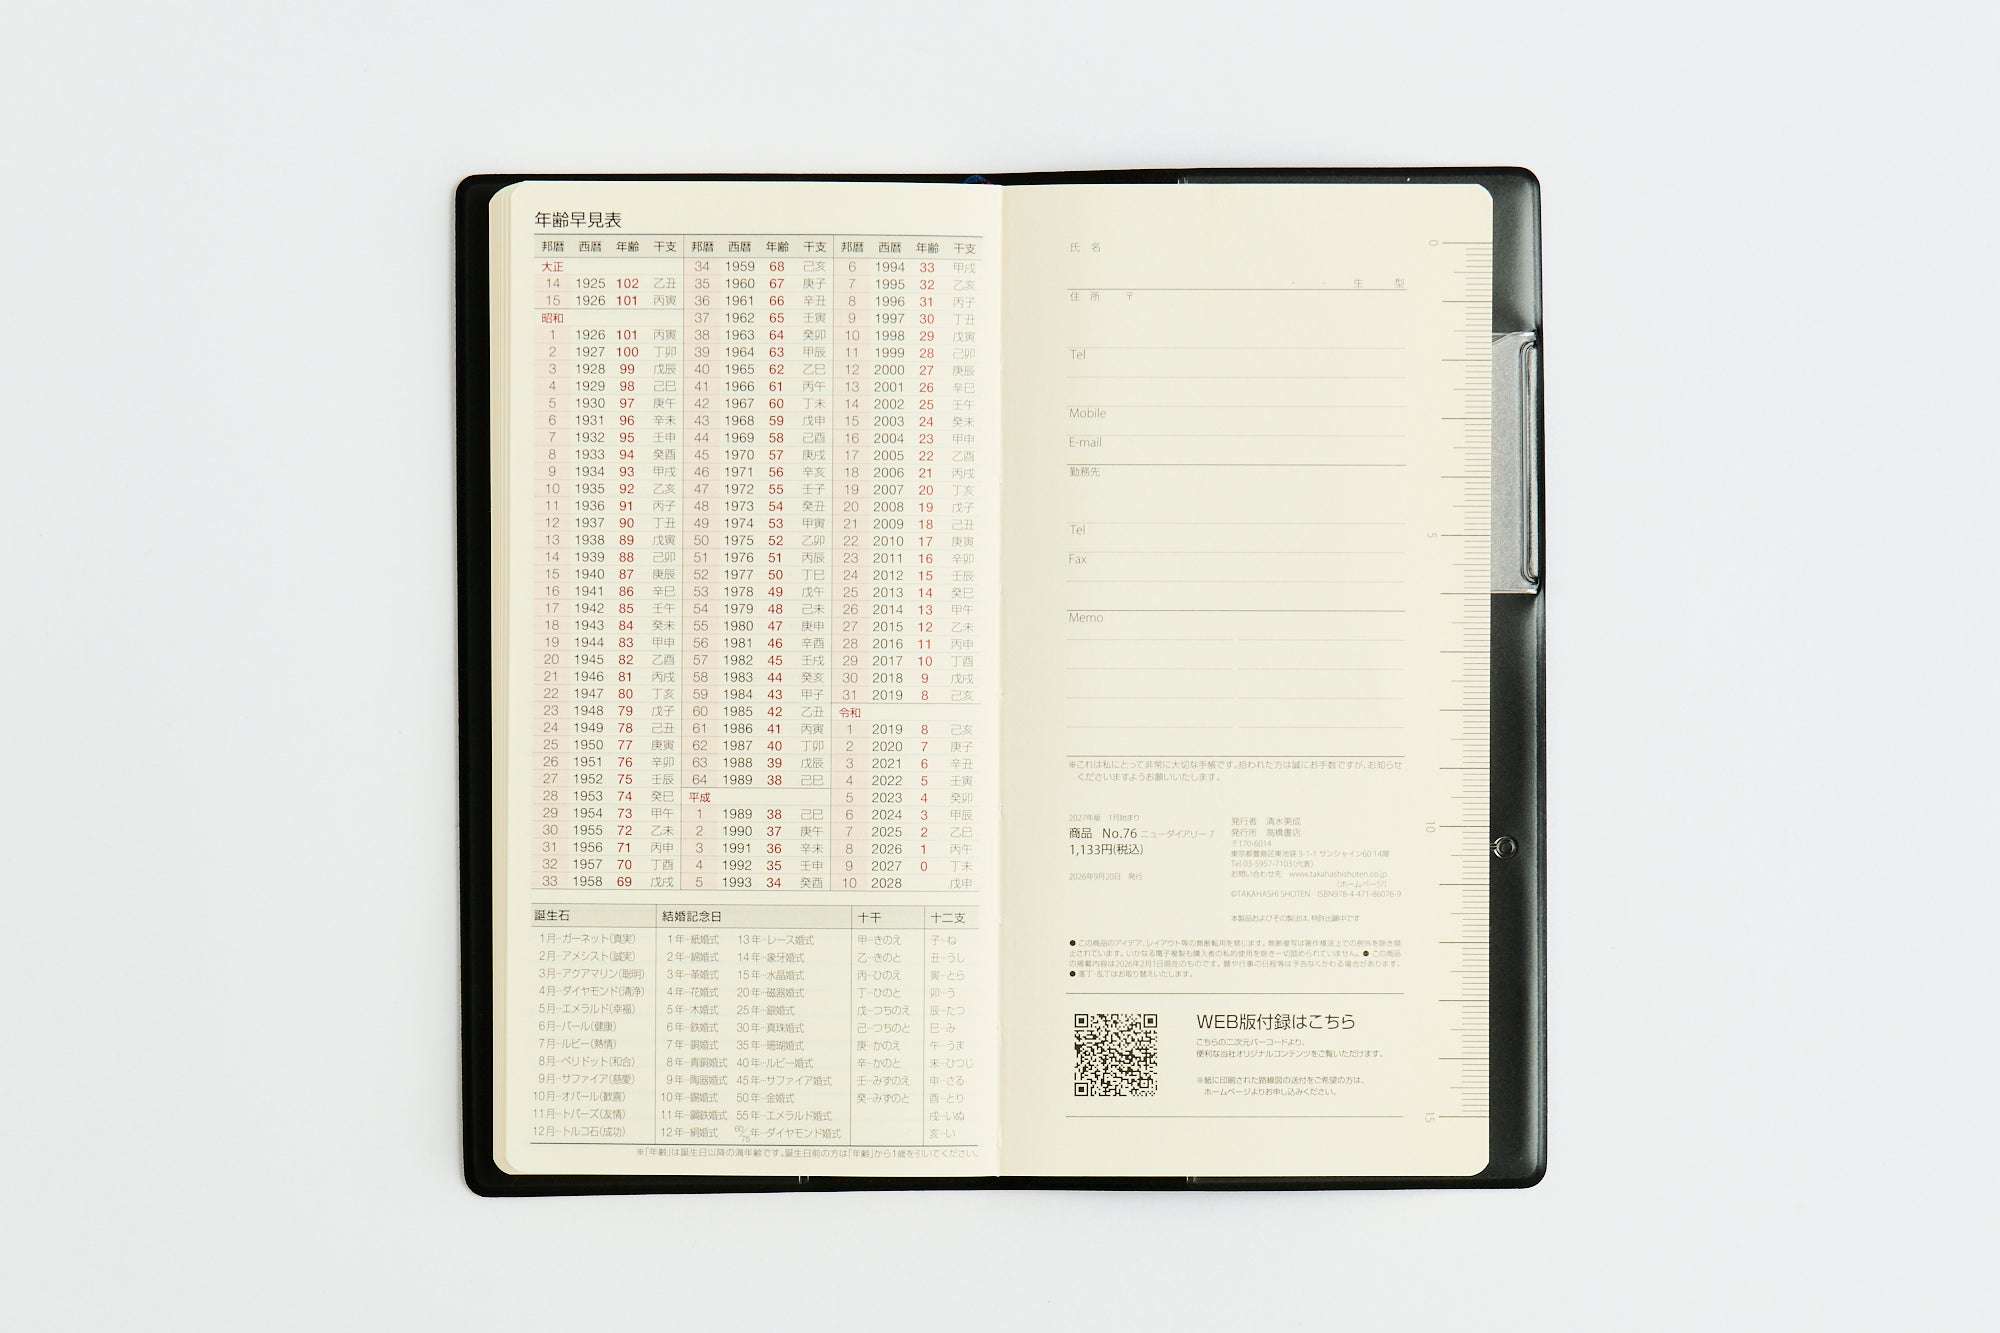 年齢早見表
邦暦 西暦 年齢 干支 邦暦 西暦 年齢 干支 邦暦 西暦 年齢 干支
大正 34 1959 68 己亥 6 1994 33 甲戌
14 1925 102 乙丑 35 1960 67 庚子 7 1995 32 乙亥
15 1926 101 丙寅 36 1961 66 辛丑 8 1996 31 丙子
昭和 37 1962 65 壬寅 9 1997 30 丁丑
1 1926 101 丙寅 38 1963 64 癸卯 10 1998 29 戊寅
2 1927 100 丁卯 39 1964 63 甲辰 11 1999 28 己卯
3 1928 99 戊辰 40 1965 62 乙巳 12 2000 27 庚辰
4 1929 98 己巳 41 1966 61 丙午 13 2001 26 辛巳
5 1930 97 庚午 42 1967 60 丁未 14 2002 25 壬午
6 1931 96 辛未 43 1968 59 戊申 15 2003 24 癸未
7 1932 95 壬申 44 1969 58 己酉 16 2004 23 甲申
8 1933 94 癸酉 45 1970 57 庚戌 17 2005 22 乙酉
9 1934 93 甲戌 46 1971 56 辛亥 18 2006 21 丙戌
10 1935 92 乙亥 47 1972 55 壬子 19 2007 20 丁亥
11 1936 91 丙子 48 1973 54 癸丑 20 2008 19 戊子
12 1937 90 丁丑 49 1974 53 甲寅 21 2009 18 己丑
13 1938 89 戊寅 50 1975 52 乙卯 22 2010 17 庚寅
14 1939 88 己卯 51 1976 51 丙辰 23 2011 16 辛卯
15 1940 87 庚辰 52 1977 50 丁巳 24 2012 15 壬辰
16 1941 86 辛巳 53 1978 49 戊午 25 2013 14 癸巳
17 1942 85 壬午 54 1979 48 己未 26 2014 13 甲午
18 1943 84 癸未 55 1980 47 庚申 27 2015 12 乙未
19 1944 83 甲申 56 1981 46 辛酉 28 2016 11 丙申
20 1945 82 乙酉 57 1982 45 壬戌 29 2017 10 丁酉
21 1946 81 丙戌 58 1983 44 癸亥 30 2018 9 戊戌
22 1947 80 丁亥 59 1984 43 甲子 31 2019 8 己亥
23 1948 79 戊子 60 1985 42 乙丑 令和
24 1949 78 己丑 61 1986 41 丙寅 1 2019 8 己亥
25 1950 77 庚寅 62 1987 40 丁卯 2 2020 7 庚子
26 1951 76 辛卯 63 1988 39 戊辰 3 2021 6 辛丑
27 1952 75 壬辰 64 1989 38 己巳 4 2022 5 壬寅
28 1953 74 癸巳 平成 5 2023 4 癸卯
29 1954 73 甲午 1 1989 38 己巳 6 2024 3 甲辰
30 1955 72 乙未 2 1990 37 庚午 7 2025 2 乙巳
31 1956 71 丙申 3 1991 36 辛未 8 2026 1 丙午
32 1957 70 丁酉 4 1992 35 壬申 9 2027 0 丁未
33 1958 69 戊戌 5 1993 34 癸酉 10 2028 戊申
誕生石 結婚記念日 十干 十二支
1月─ガーネット(真実) 1年─紙婚式 13年─レース婚式 甲─きのえ 子─ね
2月─アメシスト(誠実) 2年─綿婚式 14年─象牙婚式 乙─きのと 丑─うし
3月─アクアマリン(聡明) 3年─革婚式 15年─水晶婚式 丙─ひのえ 寅─とら
4月─ダイヤモンド(清浄) 4年─花婚式 20年─磁器婚式 丁─ひのと 卯─う
5月─エメラルド(幸福) 5年─木婚式 25年─銀婚式 戊─つちのえ 辰─たつ
6月─パール(健康) 6年─鉄婚式 30年─真珠婚式 己─つちのと 巳─み
7月─ルビー(熱情) 7年─銅婚式 35年─珊瑚婚式 庚─かのえ 午─うま
8月─ペリドット(和合) 8年─青銅婚式 40年─ルビー婚式 辛─かのと 未─ひつじ
9月─サファイア(慈愛) 9年─陶器婚式 45年─サファイア婚式 壬─みずのえ 申─さる
10月─オパール(歓喜) 10年─錫婚式 50年─金婚式 癸─みずのと 酉─とり
11月─トパーズ(友情) 11年─鋼鉄婚式 55年─エメラルド婚式 戌─いぬ
12月─トルコ石(成功) 12年─絹婚式 60/75年─ダイヤモンド婚式 亥─い
※「年齢」は誕生日以降の満年齢です。誕生日前の方は「年齢」から1歳を引いてください。
氏 名
・ ・ 生 型
住 所 〒
Tel
Mobile
E-mail
勤務先
Tel
Fax
Memo
※これは私にとって非常に大切な手帳です。拾われた方は誠にお手数ですが、お知らせ
くださいますようお願いいたします。
2027年版 1月始まり
商品 No.76 ニューダイアリー 7
1,133円(税込)
2026年9月20日 発行
発行者 清水美成
発行所 高橋書店
〒170-6014
東京都豊島区東池袋 3-1-1 サンシャイン60 14階
Tel 03-5957-7103(代表)
お問い合わせ先 www.takahashishoten.co.jp
(ホームページ)
©TAKAHASHI SHOTEN ISBN978-4-471-86076-9
本製品およびその製法は、特許出願中です
● この商品のアイデア、レイアウト等の無断転用を禁じます。無断複写は著作権法上での例外を除き禁
止されています。いかなる電子複製も購入者の私的使用を除き一切認められていません。● この商品
の掲載内容は2026年2月1日現在のものです。暦や行事の日程等は予告なくかわる場合があります。
● 落丁・乱丁はお取り替えいたします。
WEB版付録はこちら
こちらの二次元バーコードより、
便利な当社オリジナルコンテンツをご覧いただけます。
※紙に印刷された路線図の送付をご希望の方は、
ホームページよりお申し込みください。
0
5
10
15